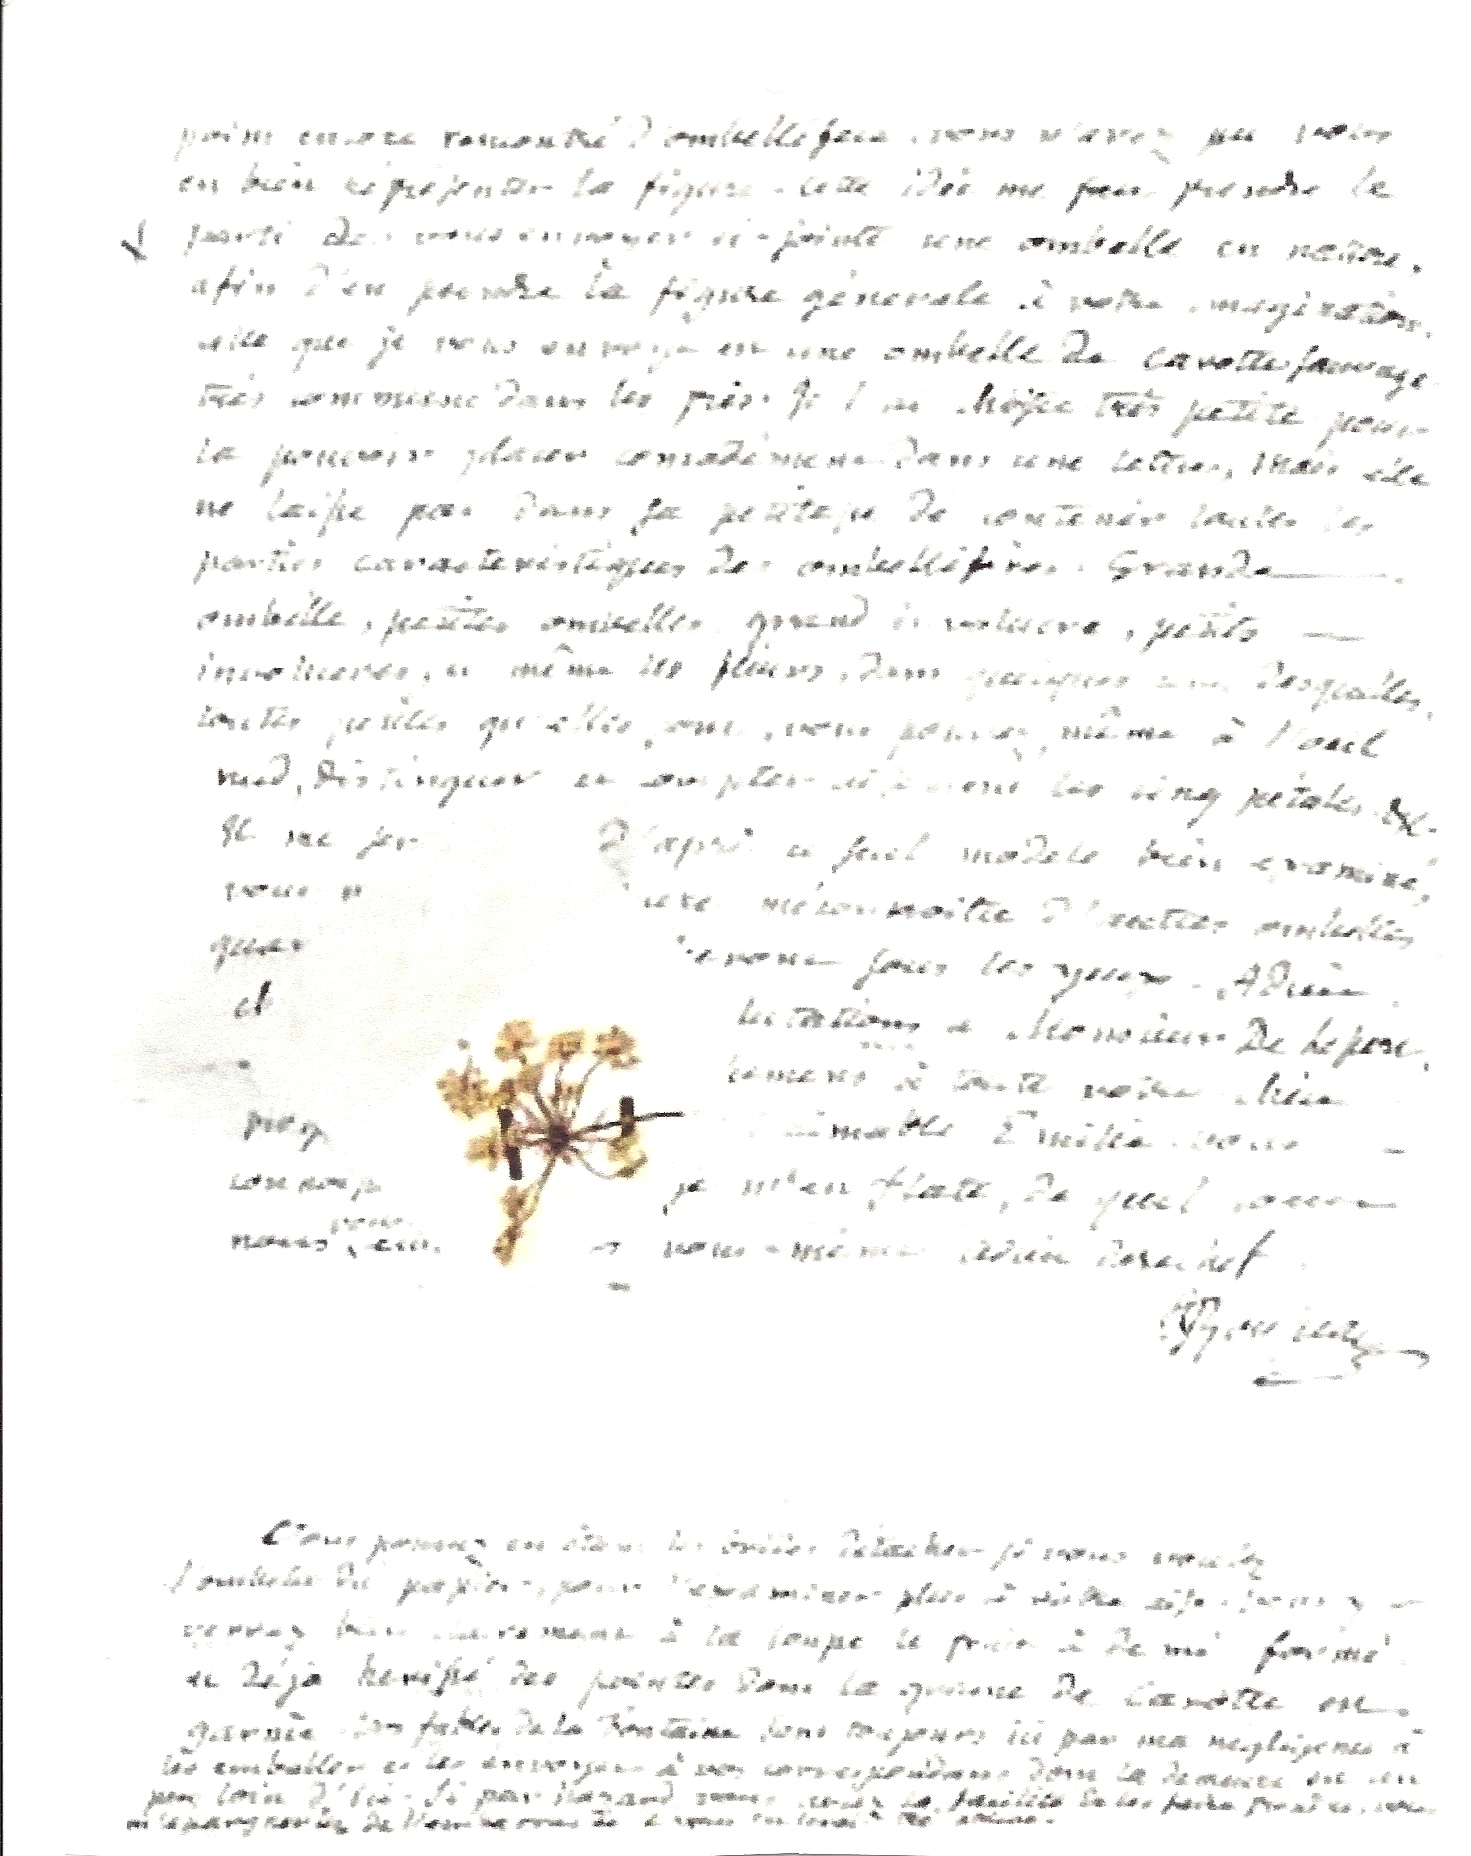 point encore rencontré d'ombelliferes vous n'avez pu vous
en bien réprésenter la figure. cette idée me fait prendre le
parti de vous envoyer ci-jointe une ombelle en nature,
afin d'en peindre la figure génerale à votre imagination.
celle que je vous envoye est une ombelle de Carotte sauvage
très commune dans les prés. Je l'ai choisie très petite pour
la pouvoir placer comodément dans une lettre, mais elle
ne laisse pas dans sa petitesse de contenir toutes les
parties caracteristiques des ombelliféres. Grande
ombelle, petites ombelles grand involucre, petits
involucres, et même les fleurs, dans quelques unes desquelles
toutes petites qu'elles sont, vous pouvez, même à l'oeil
nud, distinguer et compter aisément les cinq pétales.
Il me se d'après ce seul modéle bien examiné,
vous n mécounoitre d'autres ombelles
quan sous les yeux. Adieu
ch
lutations à Monsieur De Lepere,
limens à toute votre chère
aimable Emilie. vous
connoiss je m'en flate, de quel
nous vous-même. Adieu derechef

Vous pouvez en ôtant les brides détacher si vous voulez
l'ombelle du papier, pour l'examiner plus à votre aise. vous y
verrez bien clairement à la loupe le fruit à demi formé
et déja herissé des pointes dont la graine de Carotte est
garnie. Les fables de la Fontaine sont toujours ici par ma negligence à
les emballer et les envoyer à vos correspondans dont la demeure est un
peu loin d'ici. Si par hazard vous aviez la facilité de les faire prendre, vous
m'épargneriez de l'embarras